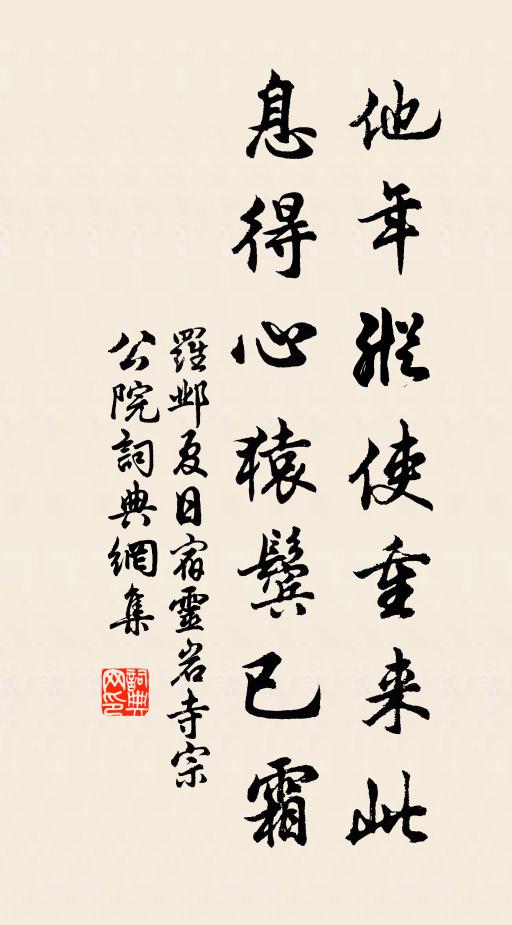 他年縱使重来此
息得心猿鬓已霜
羅邺夏日宿靈岩寺宗
公院詞典網集
詞典
网印